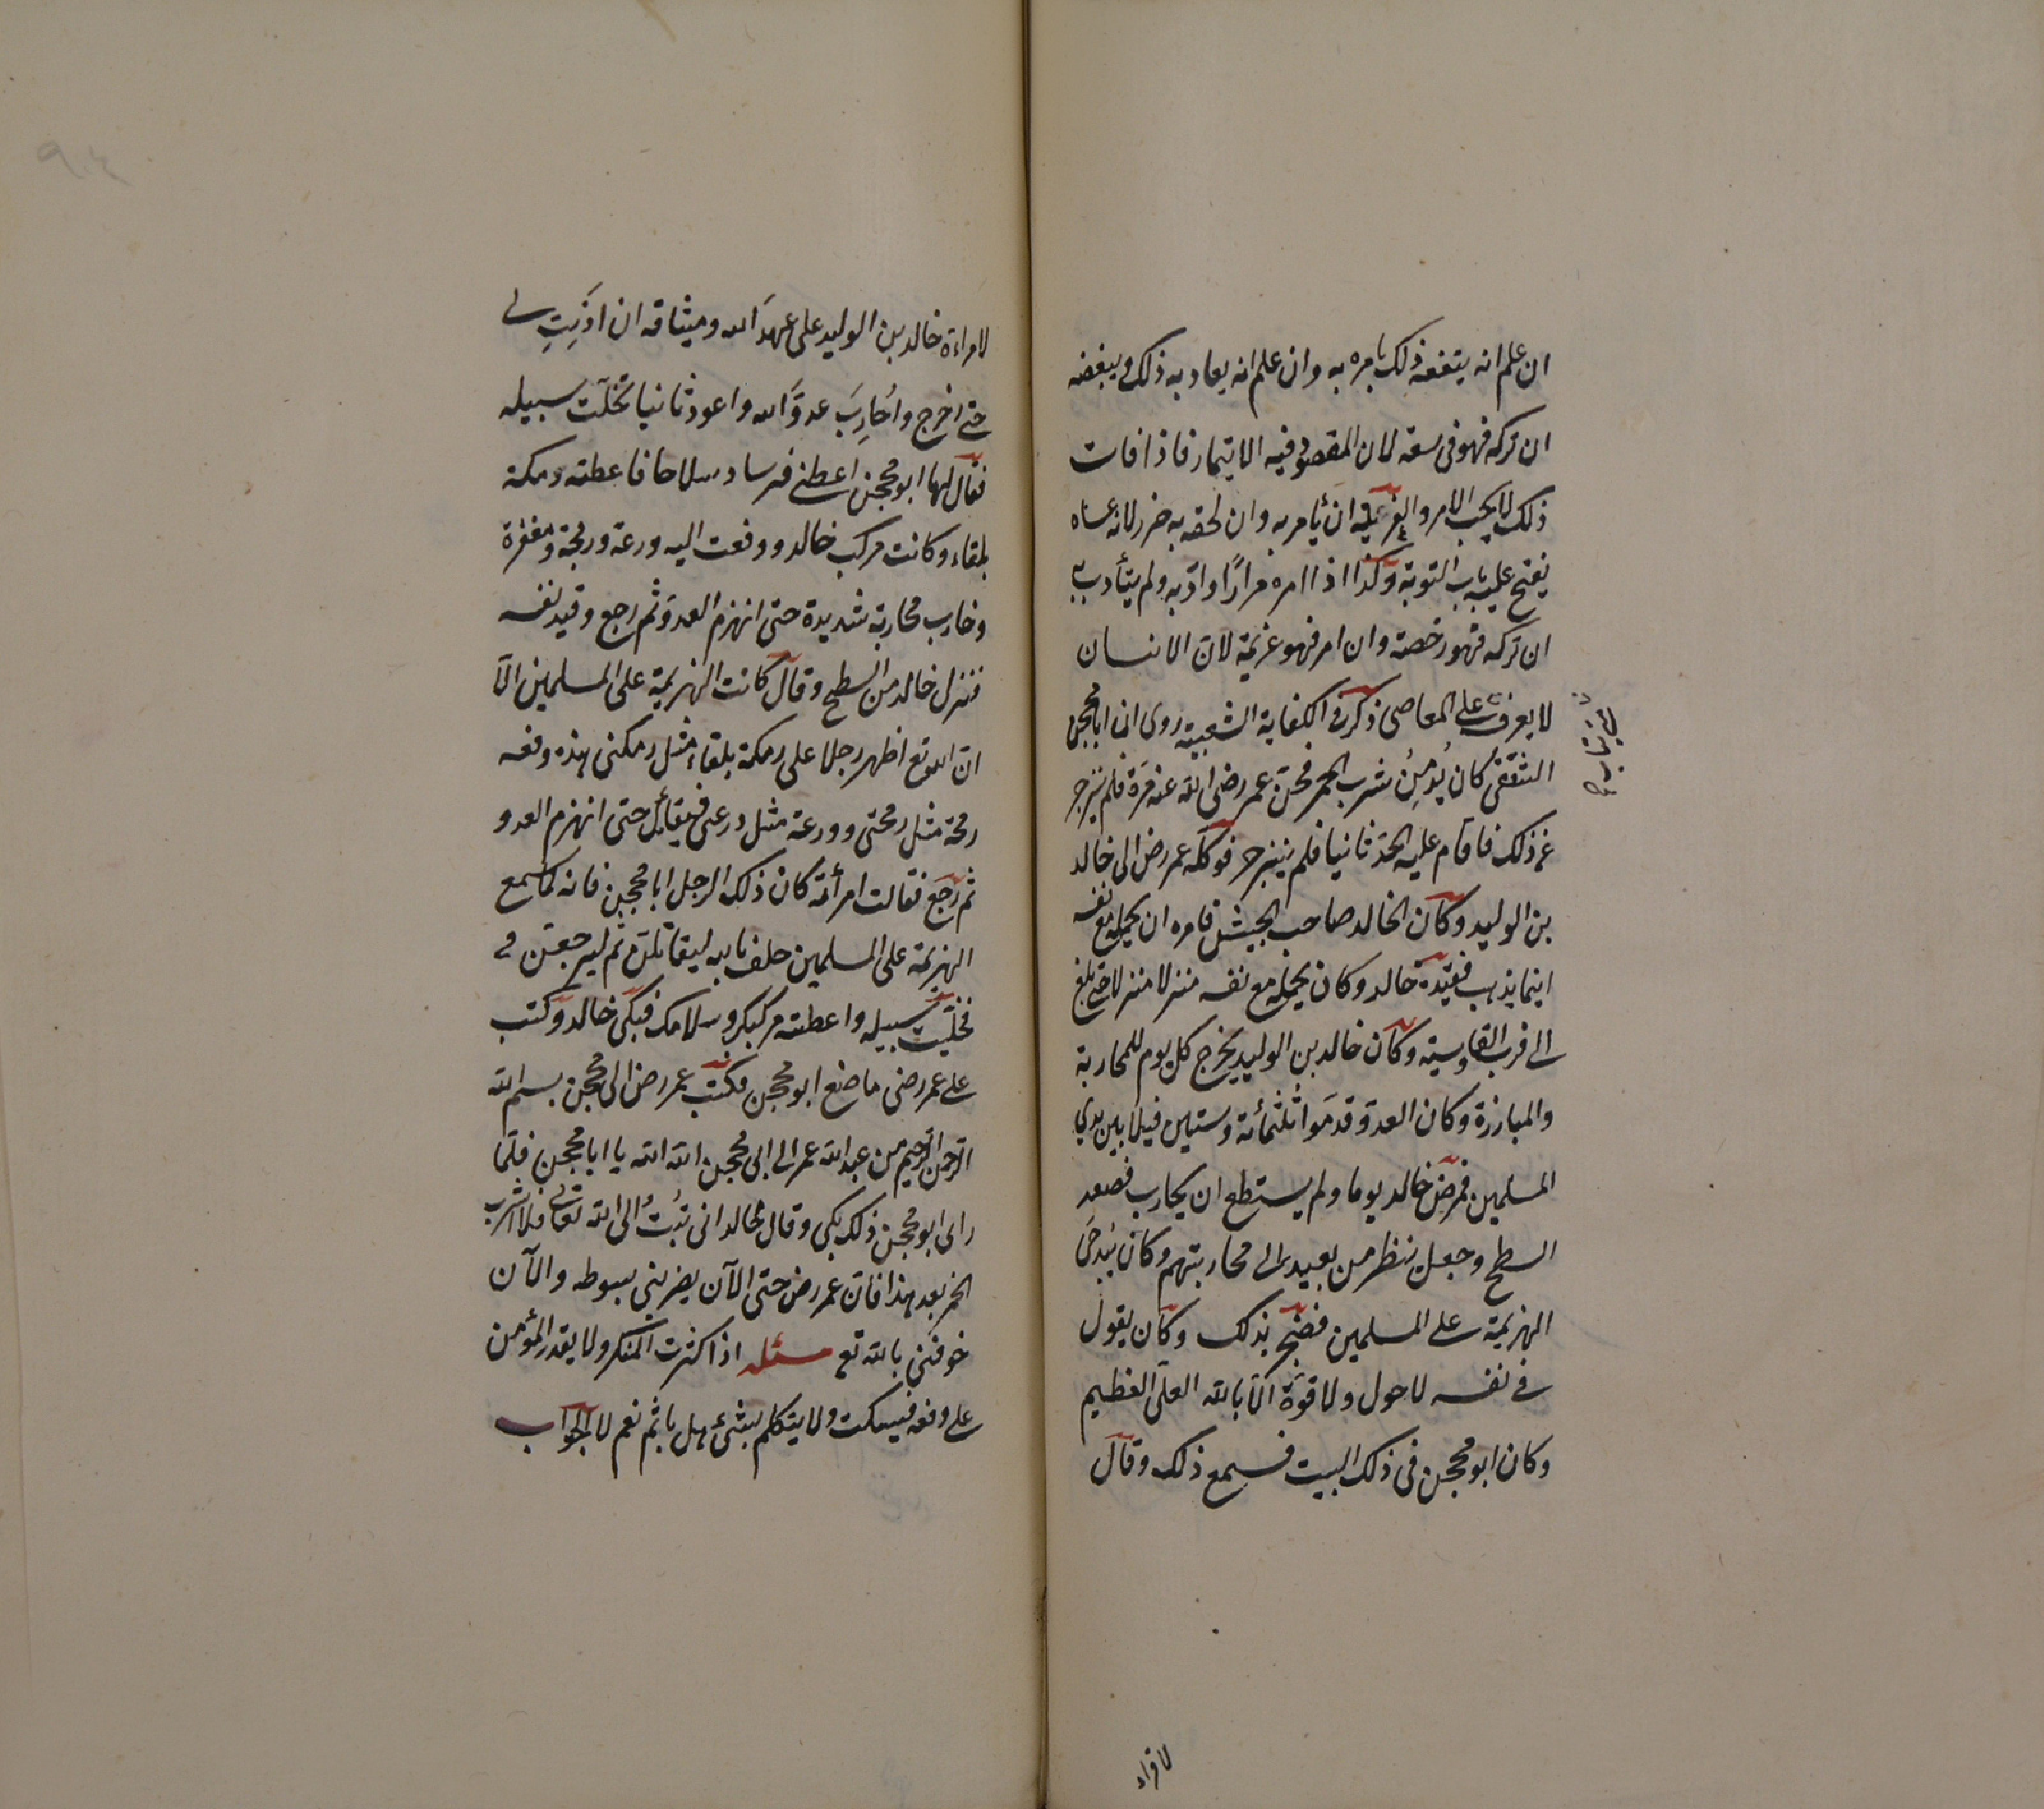 ان علم انه يتفعه ذلك يامره به وان علم انه يعاد به ذلك ويبغضه
ان تركه فهو فى سعة لان المقصود فيه الايتمار فاذا فات
ذلك لا يجب الامر و ان يأمر به وان لحقه به ضرر لانه عساه
يفتح عليه باب التوبة وكذا اذا امره مرارًا وادّبه ولم يتأدب به
ان تركه فهو رخصة وان امر فهو عزيمة لانّ الانسان
لا يعرف على المعاصى ذكر فى الكفاية الشعبية روى ان ابا محجن
الثقفى كان يُدمِنُ شرب الخمر فحدّه عمر رضى الله عنه مرّة فلم ينزجر
عن ذلك فاقام عليه الحدّ ثانيا فلم ينزجر فوكله عمر رض الى خالد
بن الوليد وكان الخالد صاحب الجيش فامره ان يحمله مع نفسه
اينما يذهب فقيّده خالد وكان يحمله مع نفسه منزلا منزلا حتى بلغ
الى قرب القادسية وكان خالد بن الوليد يخرج كل يوم للمحاربة
والمبارزة وكان العدوّ قدموا ثلثمائة وستين فيلا بين يدي
المسلمين فمرض خالد يوما ولم يستطع ان يحارب فصعد
السطح وجعل ينظر من بعيد الى محاربتهم وكان
الهزيمة على المسلمين فضجّ بذلك وكان يقول
فى نفسه لا حول ولا قوّة الّا بالله العلىّ العظيم
وكان ابو محجن فى ذلك البيت فسمع ذلك وقال
لامراءة خالد بن الوليد على عهدَ الله وميثاقه ان اذنتِ لى
حتى اخرج واُحارِبَ عدوَّ الله واعود ثانيا فخلّت سبيله
فقال لها ابو محجن اعطنى فرسا وسلاحا فاعطته رمكة
بلقاء وكانت مركب خالد ودفعت اليه درعه ورمحه ومغفره
وحارب محاربة شديدة حتى انهزم العدوّ ثم رجع وقيد نفسه
فنزل خالد من السطح وقال كانت الهزيمة على المسلمين الّا
انّ الله تع اظهر رجلا على رمكة بلقاء مثل رمكتى هذه ومعه
رمحه مثل رمحى ودرعه مثل درعى فيقاتل حتى انهزم العدو
ثم رجع فقالت امرأته كان ذلك الرجل ابا محجن فانه لما سمع
الهزيمة على المسلمين حلف بالله ليقاتلنّ ثم ليرجعنّ
فخلّيت سبيله واعطته مركبك وسلاحك فبكى خالد وكتب
على عمر رضى ما صنع ابو محجن فكتب عمر رض الى محجن بسم الله
الرحمن الرحيم من عبد الله عمر الى ابى محجن الله الله يا ابا محجن فلمّا
راى ابو محجن ذلك بكى وقال لخالد انى تبُتُ الى الله تعالى فلا اشرب
الخمر بعد هذا فانّ عمر رض حتى الآن يضربنى بسوطه والآن
خوفنى بالله تع مسئله اذا كثرت المنكر ولا يقدر المؤمن
على دفعه فيسكت ولا يتكلم بشئ هل يأثم نعم لا الجواب
لامراء